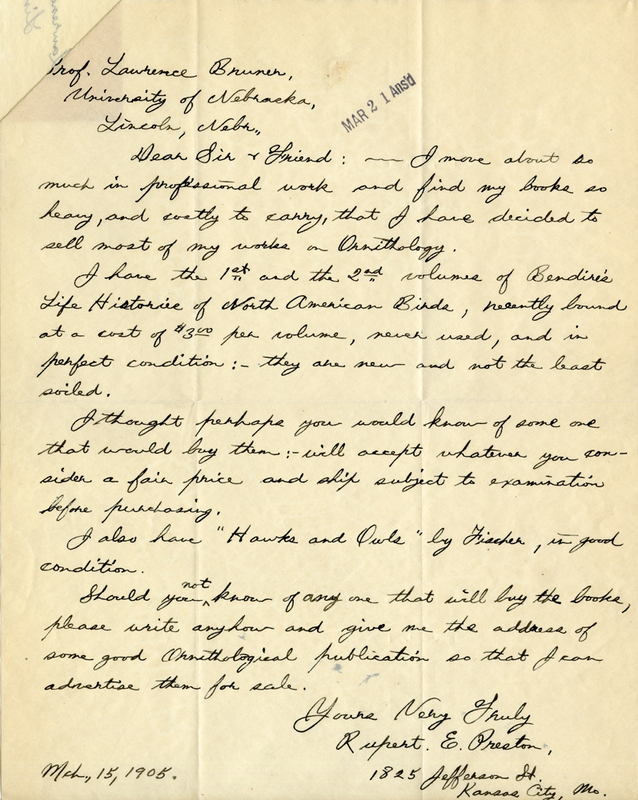 Prof. Lawrence Bruner,
University of Nebraska,
Lincoln, Nebr.,
MAR 21 Ans'd
Dear Sir & Friend: — I move about so
much in professional work and find my books so
heavy, and costly to carry, that I have decided to
sell most of my works on Ornithology.
I have the 1st and the 2nd volumes of Bendire's
Life Histories of North American Birds, recently bound
at a cost of $3.00 per volume, never used, and in
perfect condition:- they are new and not the least
soiled.
I thought perhaps you would know of some one
that would buy them:- will accept whatever you con-
sider a fair price and ship subject to examination
before purchasing.
I also have "Hawks and Owls" by Fischer, in good
condition.
Should you not know of any one that will buy the books,
please write anyhow and give me the address of
some good Ornithological publication so that I can
advertise them for sale.
Yours Very Truly
Rupert. E. Preston,
Mch., 15, 1905.
1825 Jefferson St.
Kansas City, Mo.